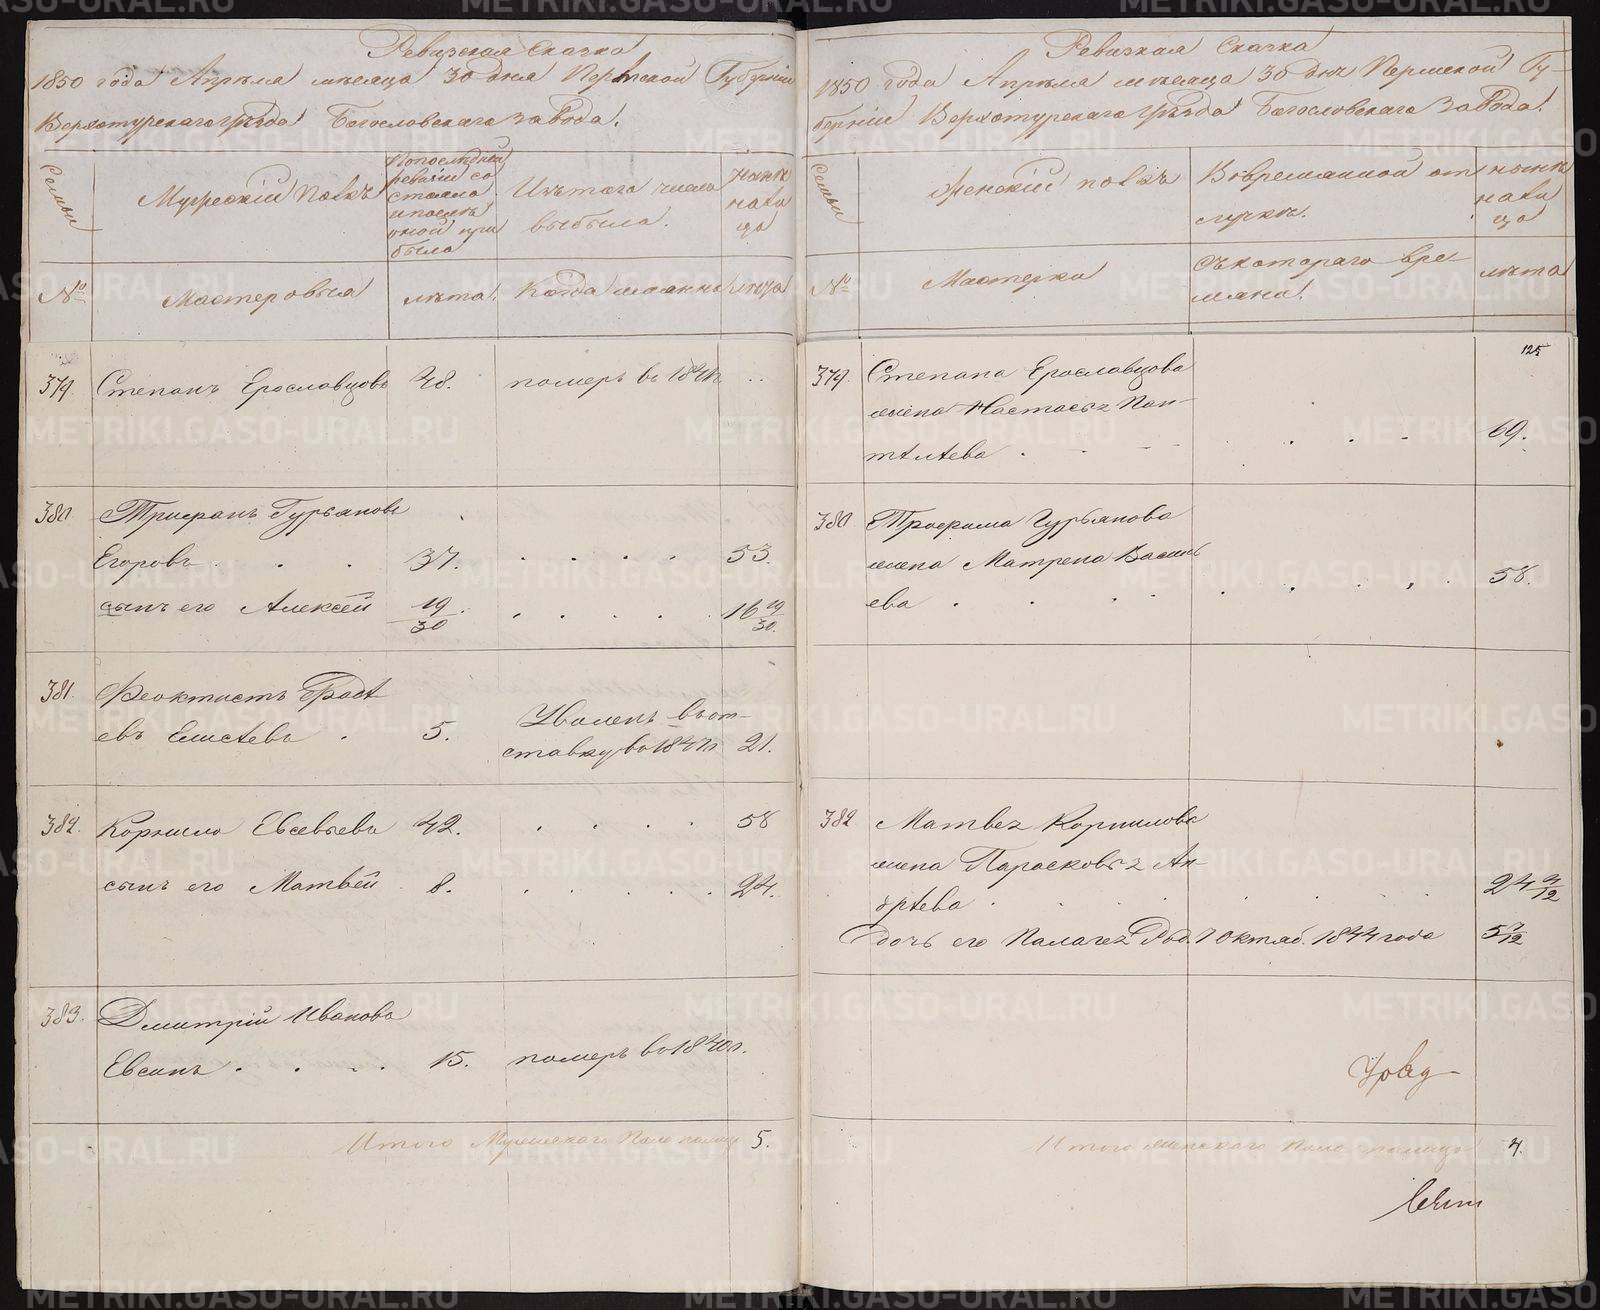 Ревизская Сказка
1850 года Апреля месяца 30 дня Пермской Губернии
Верхотурскаго Уезда Богословскаго завода.
Семьи
Мужескій Полъ
По последней ревизіи состояло и после оной прибыло
Изъ того числа выбыло.
ныне налицо
№
Мастеровыя
лета.
Когда именно
лета
379.
Степанъ Ерославцовъ
48.
померъ въ
380
Гурьяновъ
Егоровъ
37.
53.
сынъ его Алексей
19/30
16 19/30.
381.
Феоктистъ
евъ Елисеевъ
5.
Уволенъ въ от-
ставку въ 1847 г.
21.
382.
Корнило Евсевьевъ
42.
58
сынъ его Матвей
8.
24.
383.
Дмитрій Ивановъ
Евсинъ
15.
померъ въ 1840 г.
Итого Мужескаго Пола налицо
5.
Ревизкая Сказка
1850 года Апреля месяца 30 дня Пермской Гу-
берніи Верхотурскаго Уезда Богословскаго завода.
Семьи
Женскій полъ
Во временной от
лучке.
ныне
нали
цо
№
Мастерки
Съ котораго вре-
мяни.
лета
125
379.
Степана Ерославцова
жена Настасья Пан-
телеева
69.
380
Трофима Гурьянова
жена Матрена Василь
ева
58.
382
Матвея Корнилова
жена Парасковья Ан-
дреева
24 9/12
дочь его Палагея Род. 1 октяб. 1844 года
5 7/12
Уряд-
Итого женскаго пола налицо
4.
METRIKI.GASO-URAL.RU